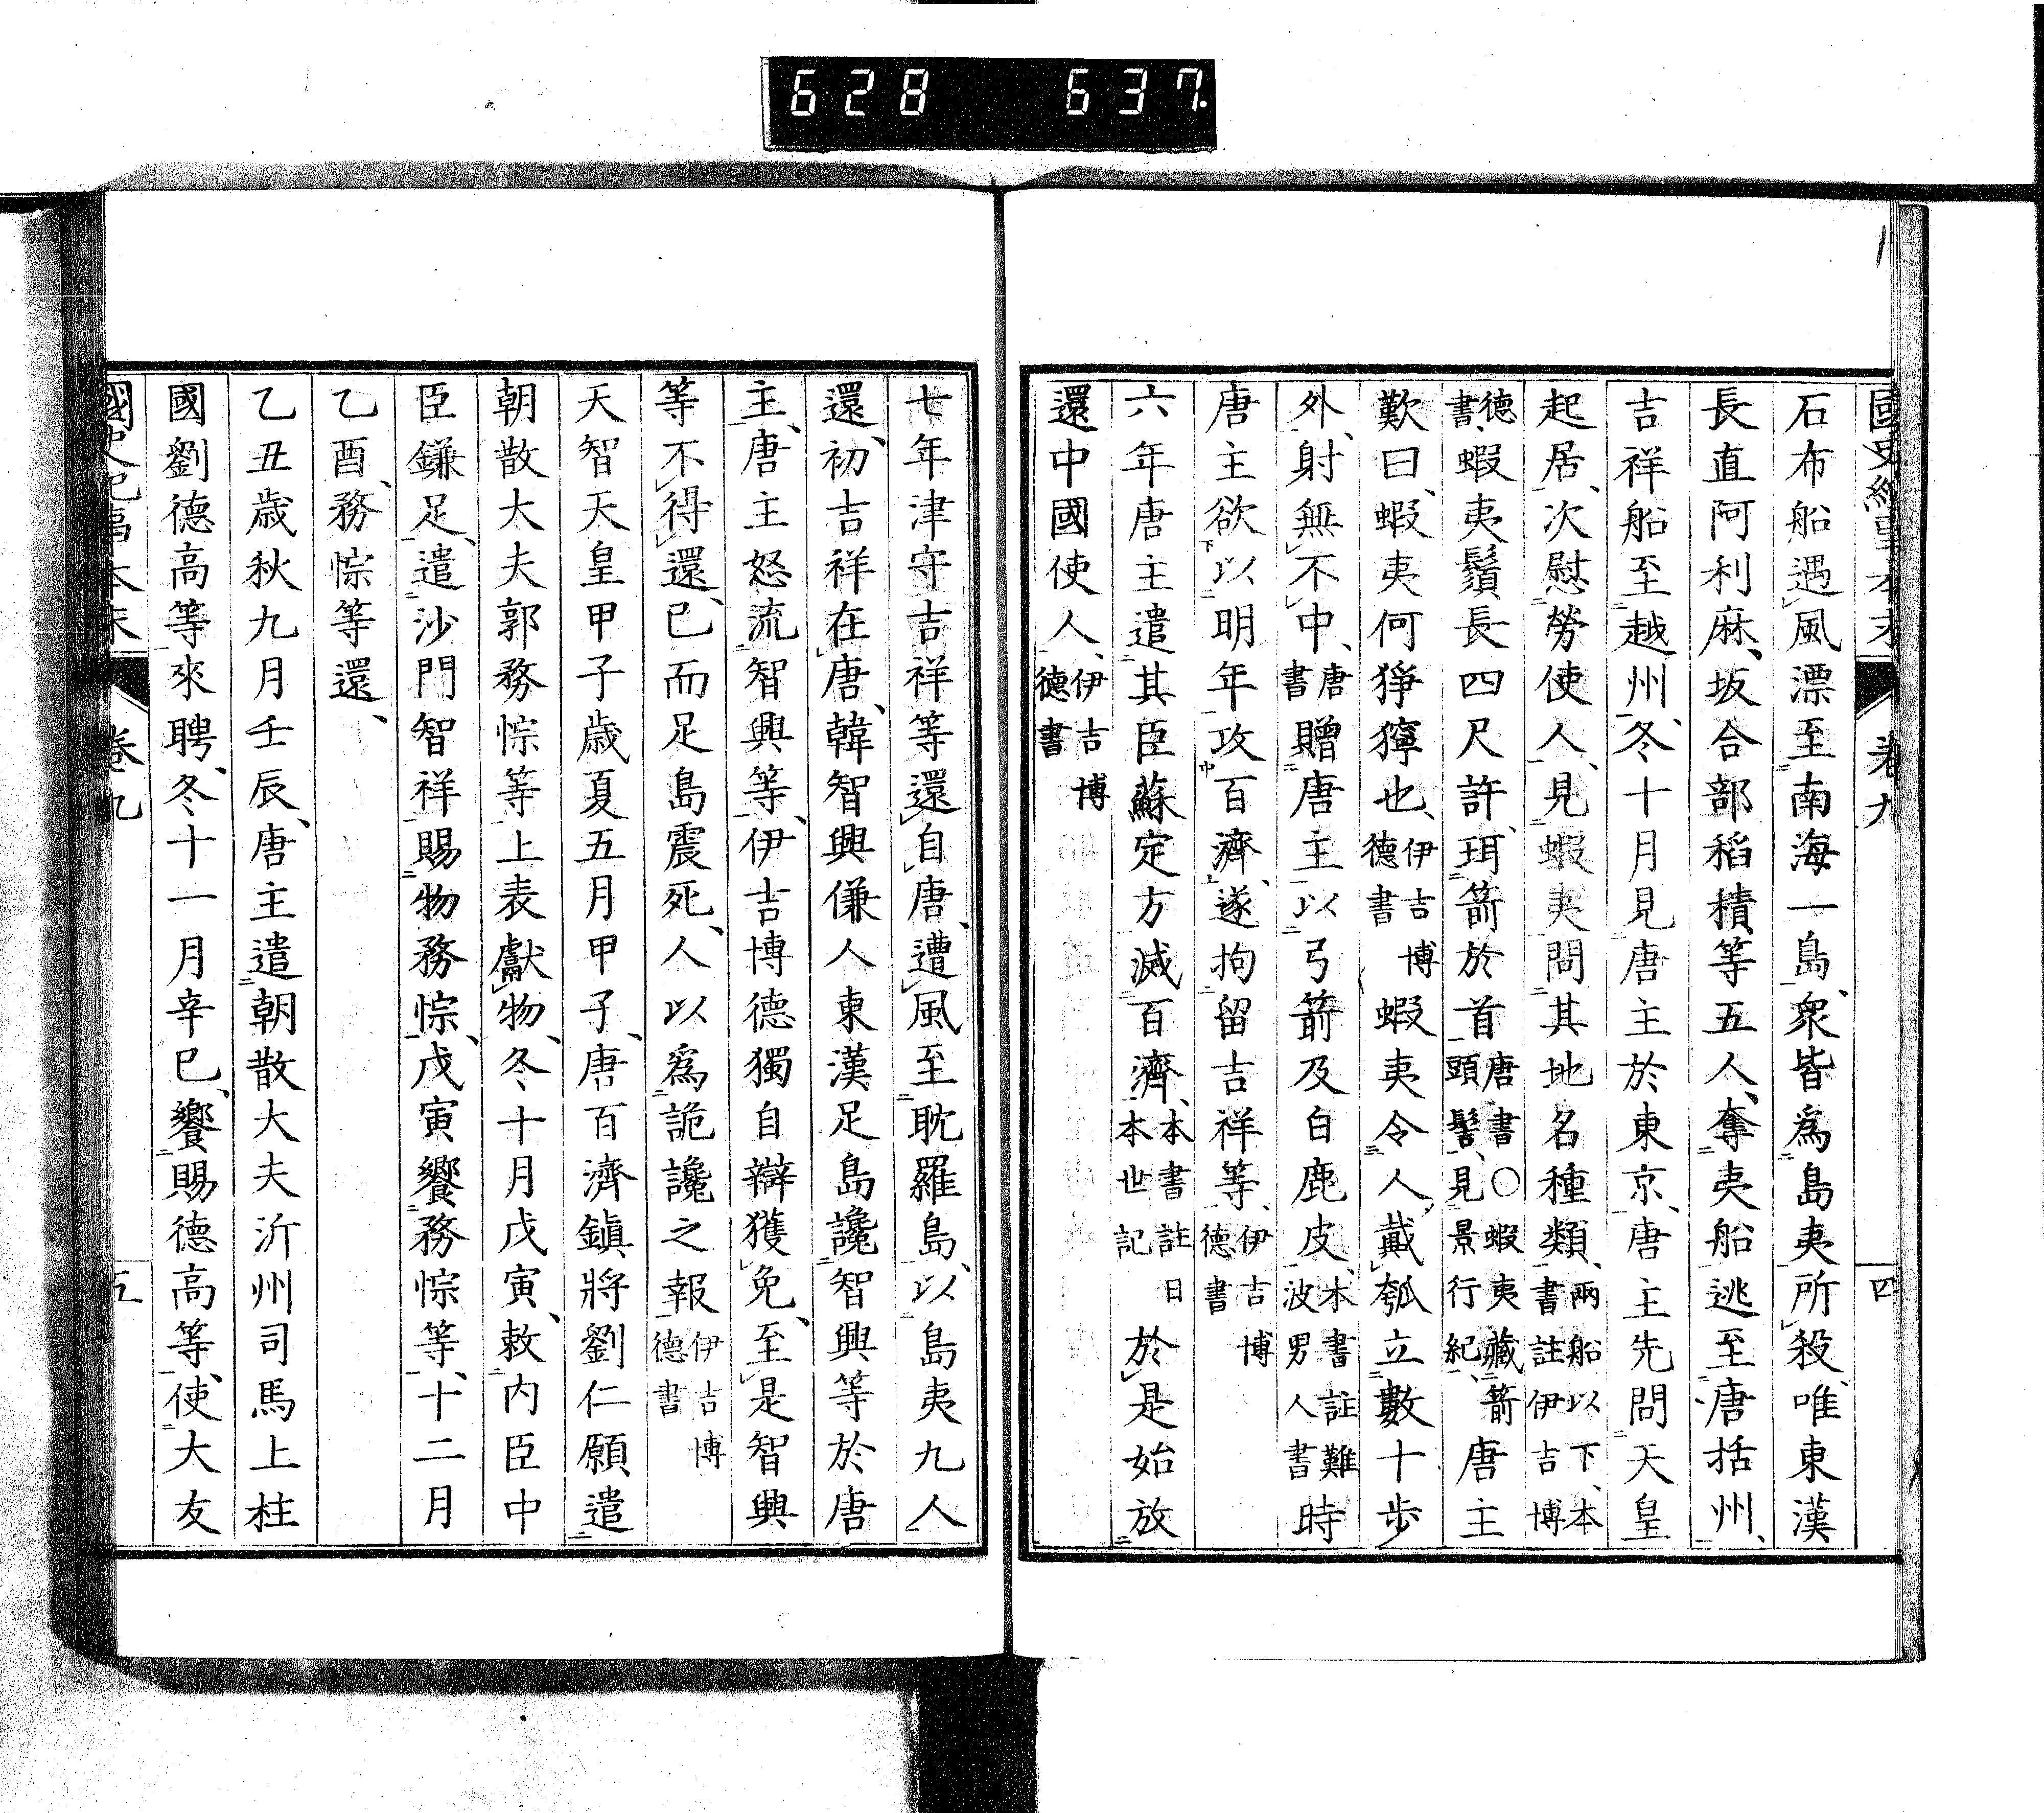 628 637.
國史紀事本末 卷九 四
石布船遇風漂至南海一島、衆皆為島夷所殺、唯東漢
長直阿利麻、坂合部稻積等五人、奪夷船逃至唐括州、
吉祥船至越州、冬十月見唐主於東京、唐主先問天皇
起居、次慰勞使人、見蝦夷問其地名種類、兩船以下、本書註伊吉博
德書、蝦夷鬚長四尺許、珥箭於首唐書○蝦夷藏箭頭髻、見景行紀、唐主
歎曰、蝦夷何猙獰也、伊吉博德書蝦夷令人戴瓠立數十步
外、射無不中、唐書贈唐主以弓箭及白鹿皮、本書註難波男人書時
唐主欲以明年攻百濟、遂拘留吉祥等、伊吉博德書
六年唐主遣其臣蘇定方滅百濟、本書註日本世記於是始放
還中國使人、伊吉博德書
七年津守吉祥等還自唐、遭風至耽羅島、以島夷九人
還、初吉祥在唐、韓智興傔人東漢足島讒智興等於唐
主、唐主怒流智興等、伊吉博德獨自辯獲免、至是智興
等不得還、已而足島震死、人以為詭讒之報伊吉博德書
天智天皇甲子歲夏五月甲子、唐百濟鎮將劉仁願遣
朝散大夫郭務悰等上表獻物、冬十月戊寅、敕内臣中
臣鎌足、遣沙門智祥賜物務悰、戊寅饗務悰等、十二月
乙酉、務悰等還、
乙丑歲秋九月壬辰、唐主遣朝散大夫沂州司馬上柱
國劉德高等來聘、冬十一月辛巳、饗賜德高等、使大友
國史紀事本末 卷九 五